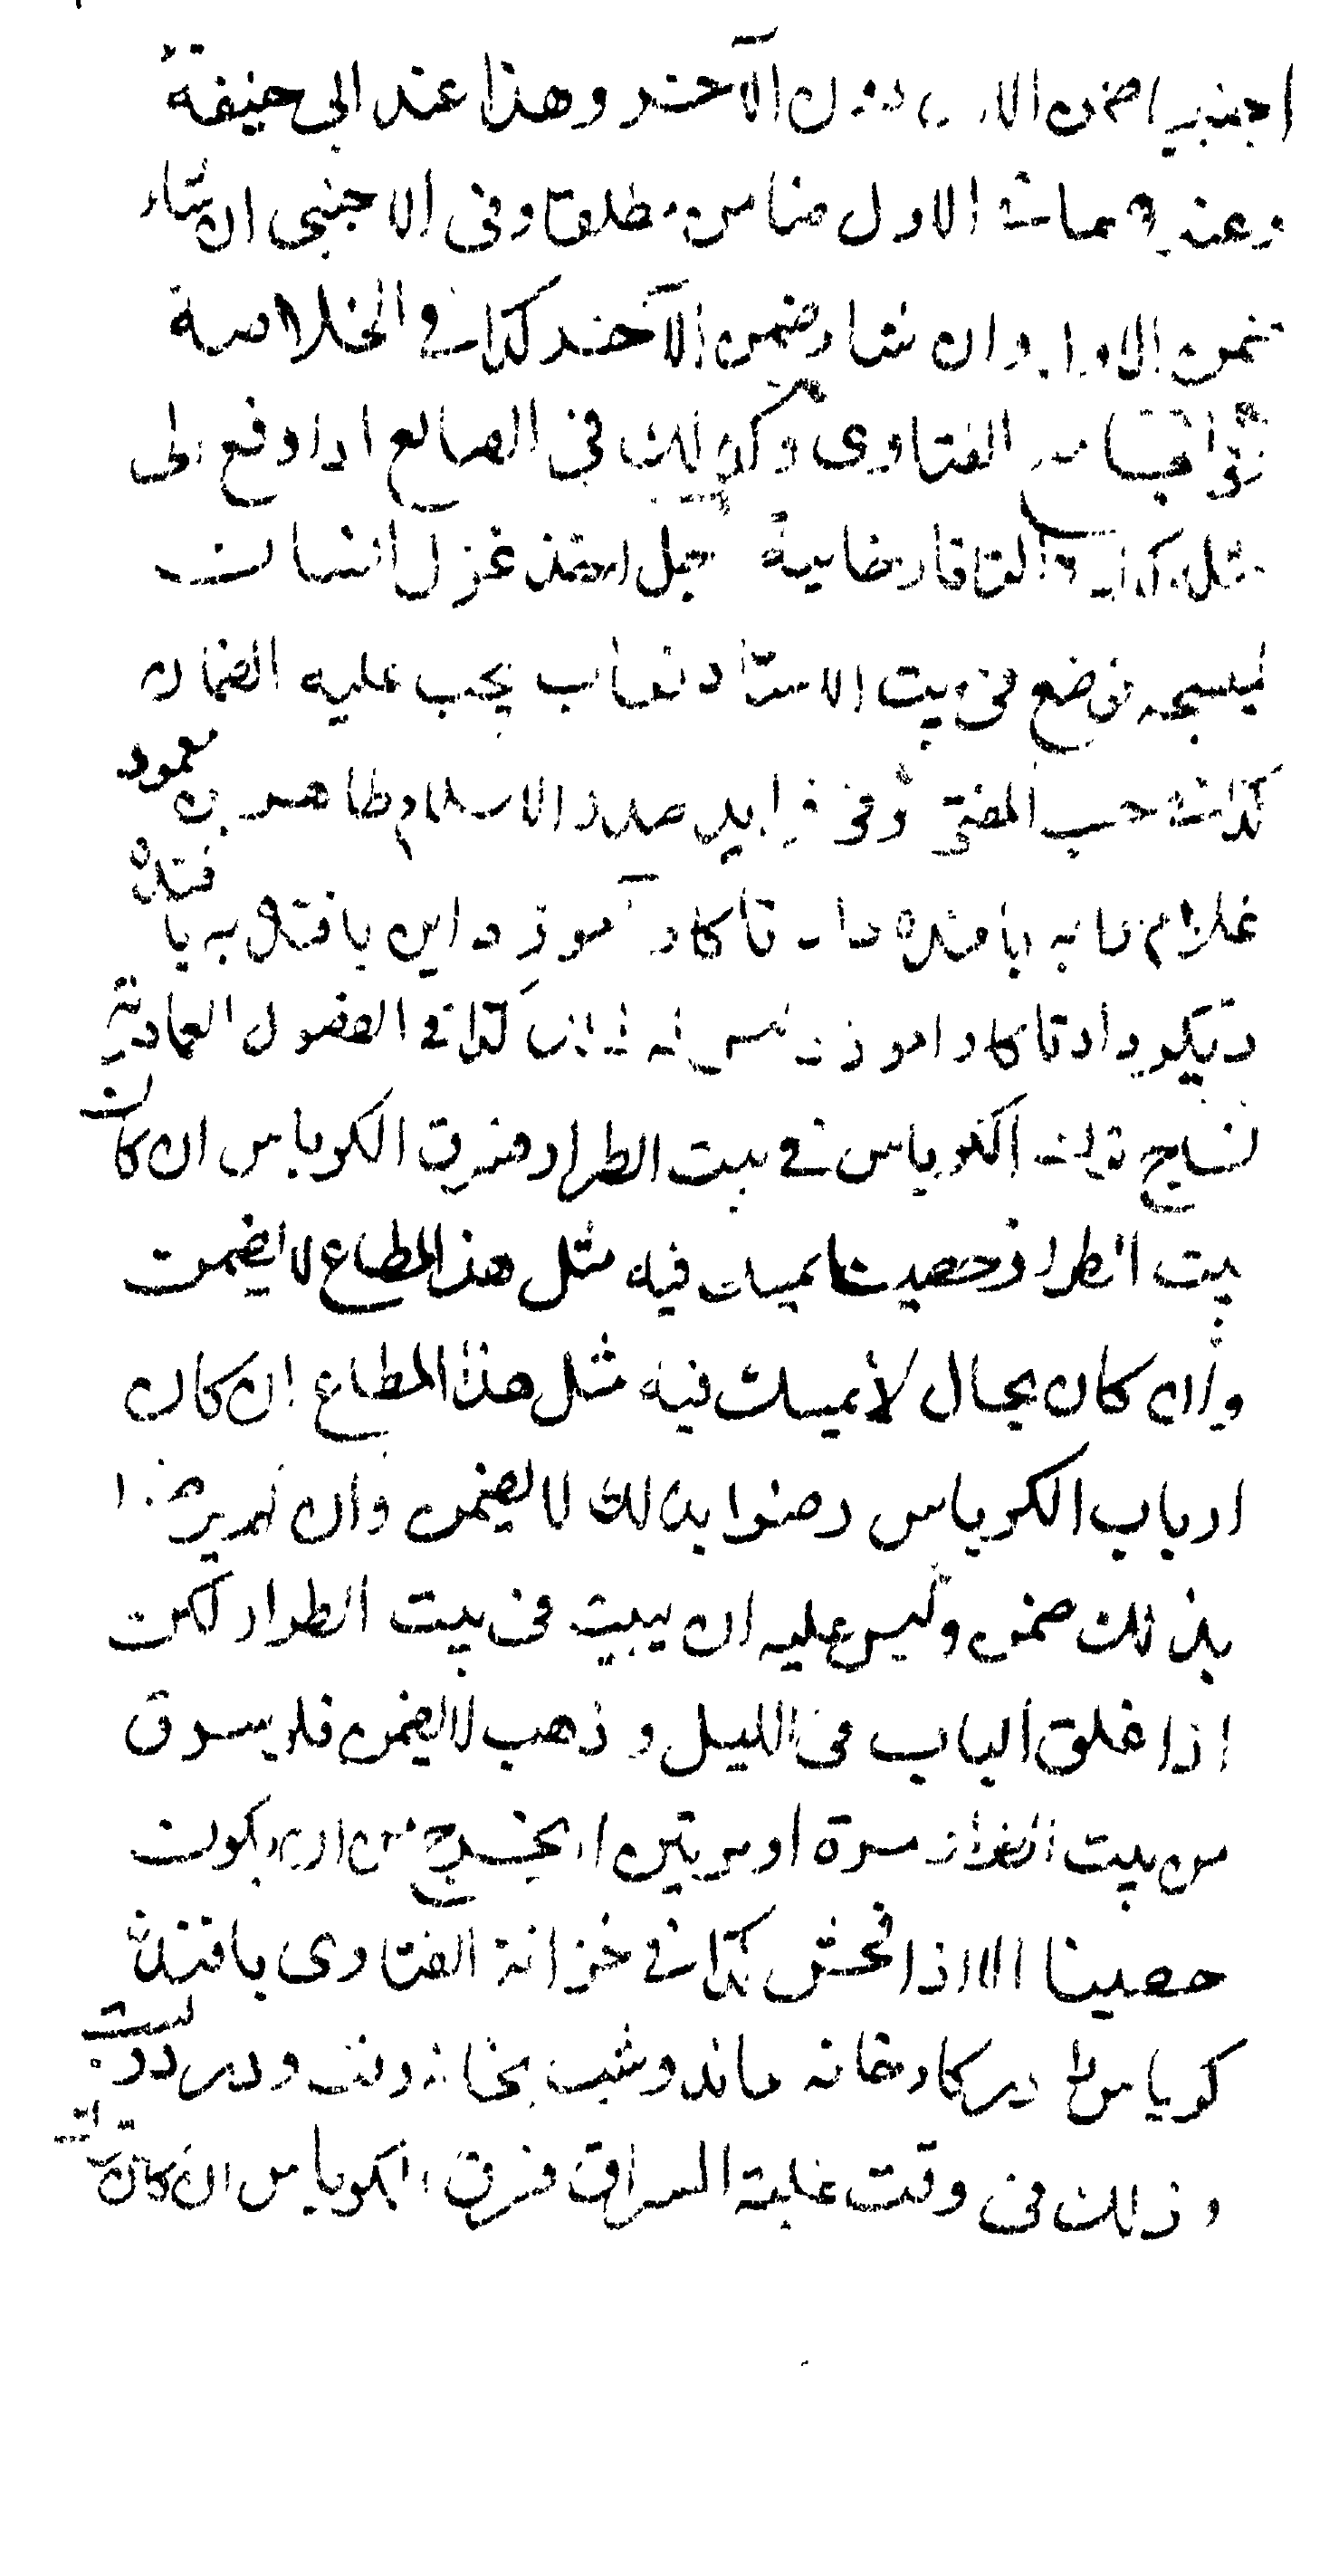 اجنبيا ضمن الاول دون الآخر وهذا عند ابي حنيفة
وعندهما الاول ضامن مطلقا وفى الاجنبى ان شاء
ضمن الاول وان شاء ضمن الآخر كذا في الخلاصة
الفتاوى وكذلك في الصانع اذا دفع الى
التاتارخانية رجل اخذ غزل انسان
لينسجه فوضع في بيت الاستاذ فغاب يجب عليه الضمان
حسب المفتى وفي فوايد صدر الاسلام طاهر بن محمود
غلام نا به بافنده داد تا كار آموزد اين بافنده به بافنده
ديكر داد تا كار اموزد كذا في الفصول العمادية
نساج ترك الكرباس في بيت الطراز فسرق الكرباس ان كان
بيت الطراز حصينا يمسك فيه مثل هذا المطاع لا يضمن
وان كان بحال لا يمسك فيه مثل هذا المطاع ان كان
ارباب الكرباس رضوا بذلك لا يضمن وان لم يرضوا
بذلك ضمن وليس عليه ان يبيت في بيت الطراز لكن
اذا غلق الباب في الليل و ذهب لا يضمن فلو سرق
من بيت الطراز مرة او مرتين لا يخرج من ان يكون
حصينا الا اذا فحش كذا في خزانة الفتاوى بافنده
كرباس را در كارخانه ماند وشب بخانه رفت ودر
وذلك في وقت غلبة السراق فسرق الكرباس ان كان